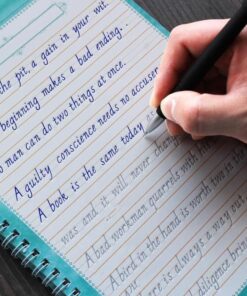 the pit, a gain in your wit.
beginning makes a bad ending.
man can do two things at once.
A guilty conscience needs no accuser
A book is the same today as
was and it will never chan
A bad workman quarrels with his
A bird in the hand is worth two
is always a way out
diligence bri